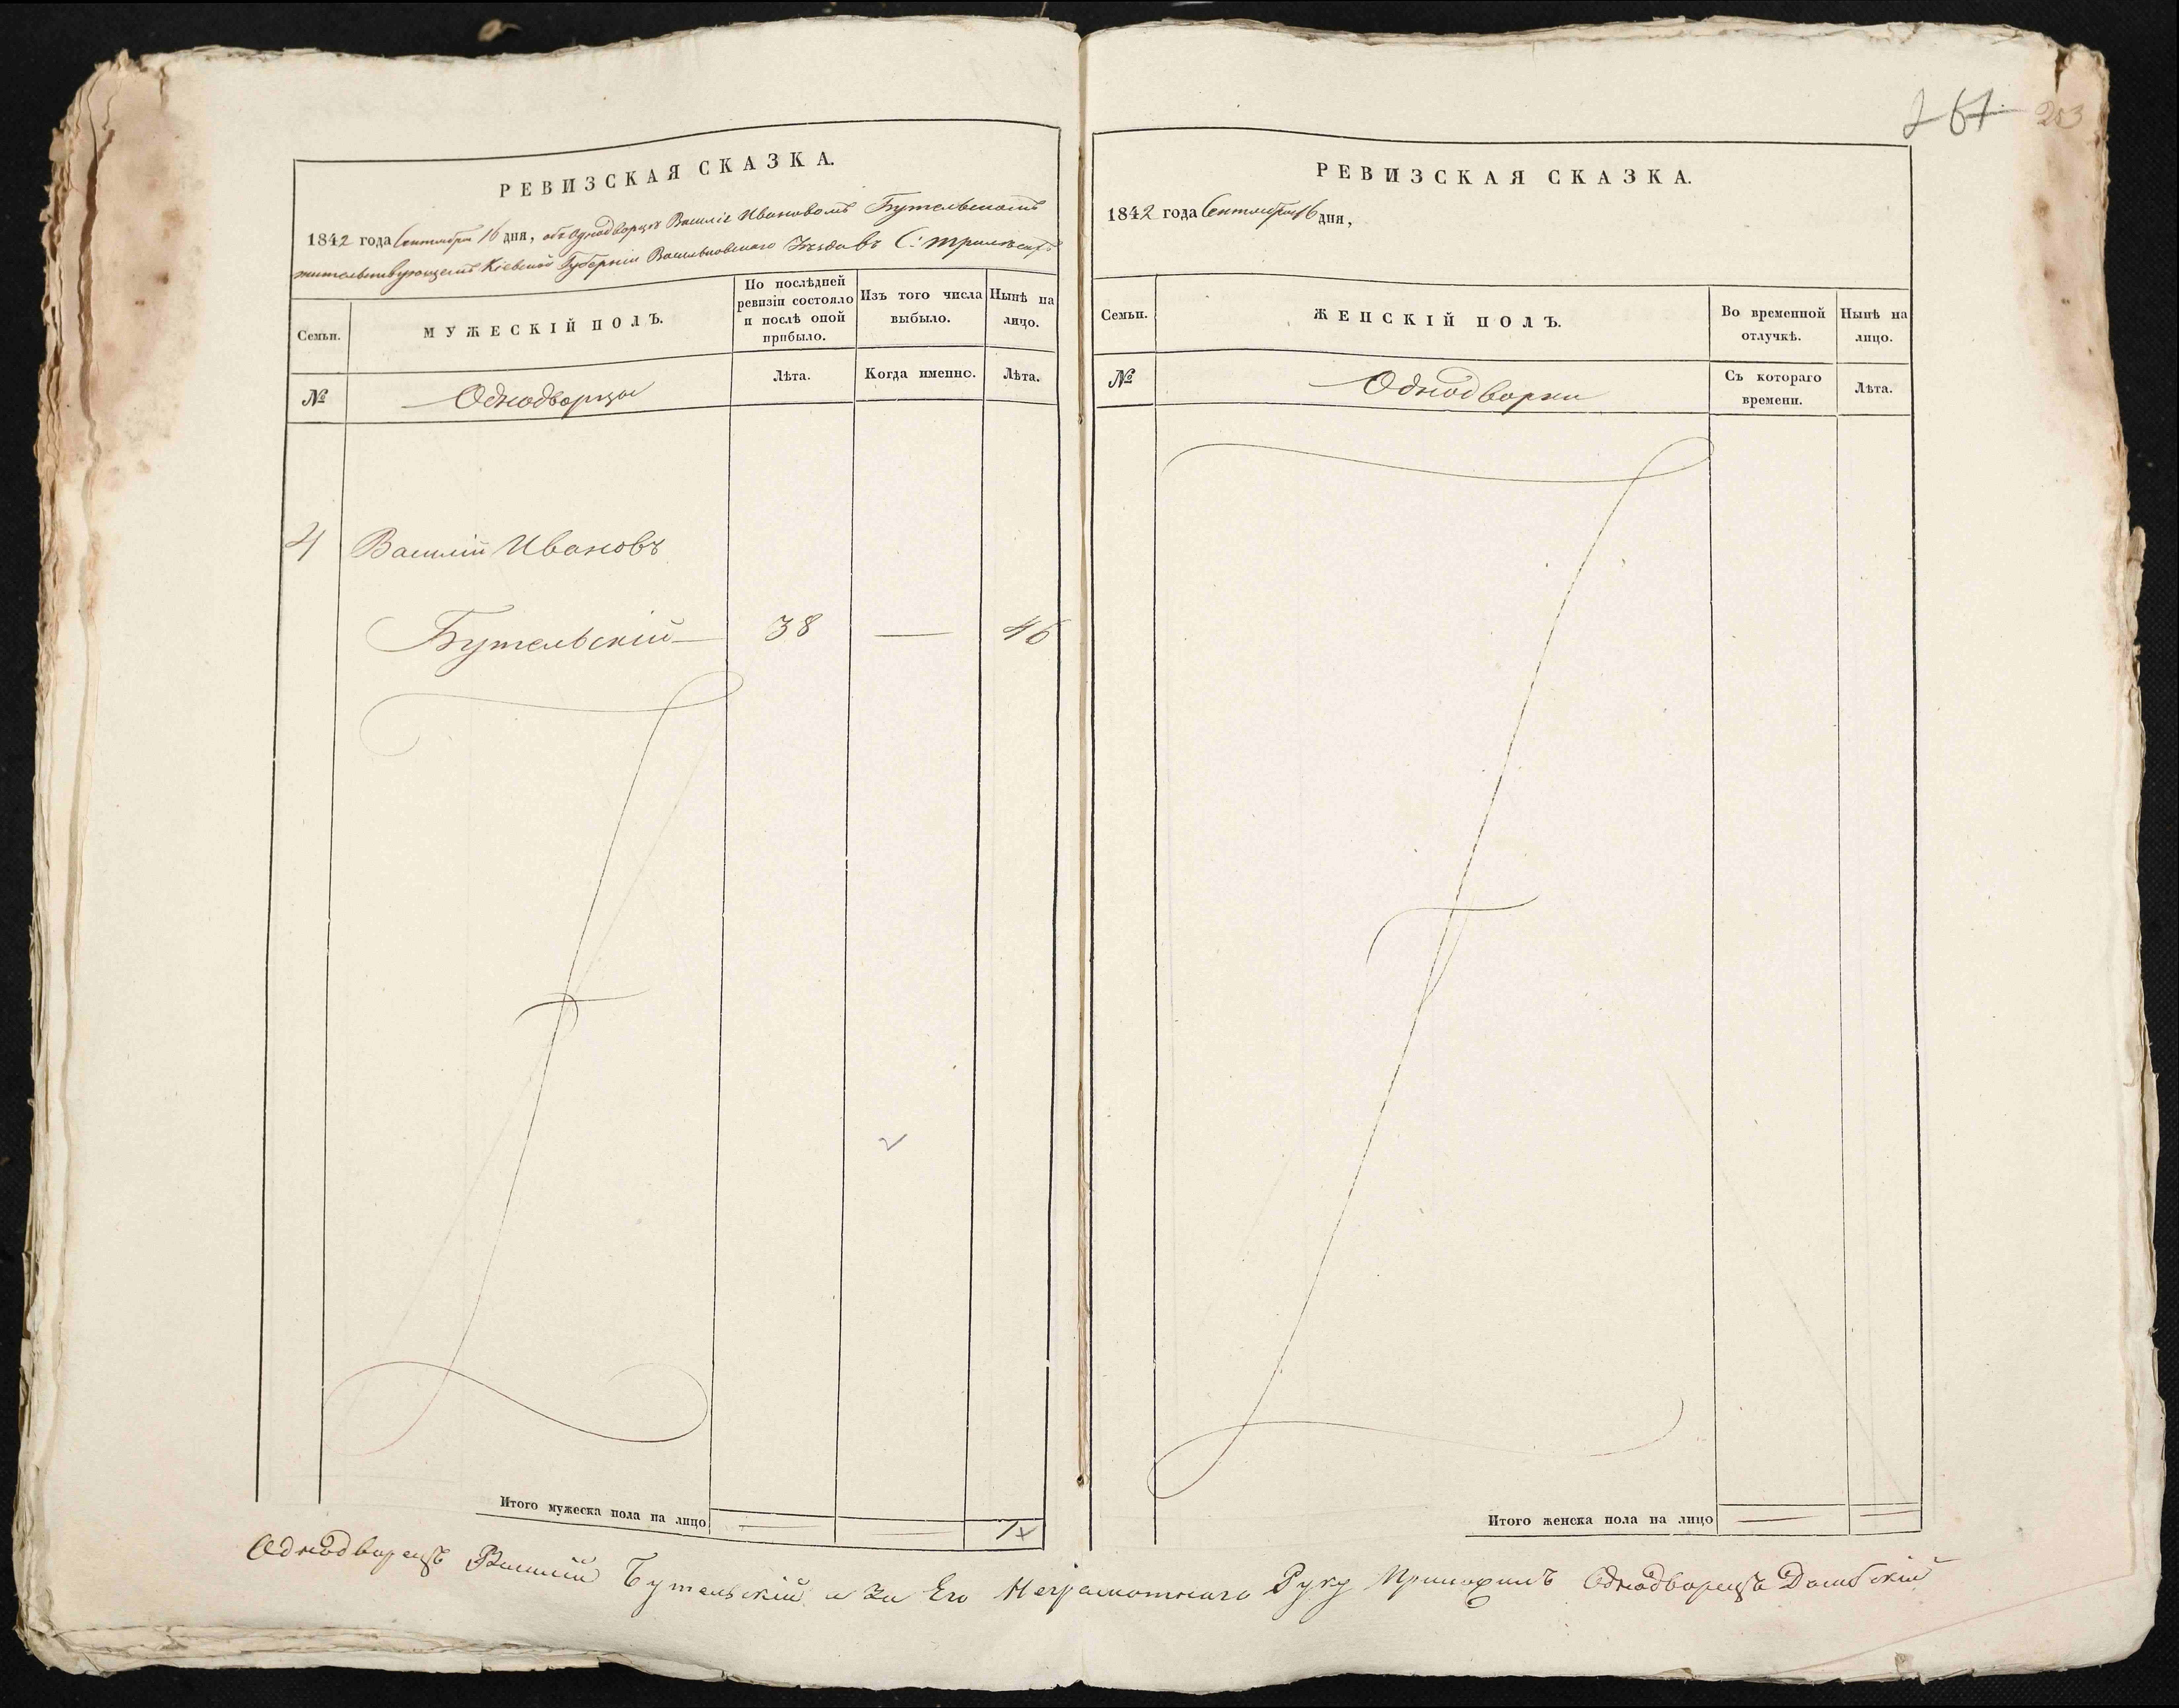 РЕВИЗСКАЯ СКАЗКА.
1842 года Сентября 16 дня, объ однодворцѣ Василіе Ивановомъ Бутельскомъ
жительствующемъ Кіевской Губерніи Васильковскаго Уѣзда въ С:
Семьи.
МУЖЕСКІЙ ПОЛЪ.
По послѣдней ревизіи состояло и послѣ оной прибыло.
Изъ того числа выбыло.
Нынѣ на лицо.
№
Однодворцы
Лѣта.
Когда именно.
Лѣта.
4 Василій Ивановъ
Бутельскій 38 — 46
Итого мужеска пола на лицо 1
261 203
РЕВИЗСКАЯ СКАЗКА.
1842 года Сентября 16 дня,
Семьи.
ЖЕНСКІЙ ПОЛЪ.
Во временной отлучкѣ.
Нынѣ на лицо.
№
Однодворки
Съ котораго времени.
Лѣта.
Итого женска пола на лицо
Однодворецъ Василій Бутельскій а За Его Неграмотнаго Руку Приложилъ Однодворецъ